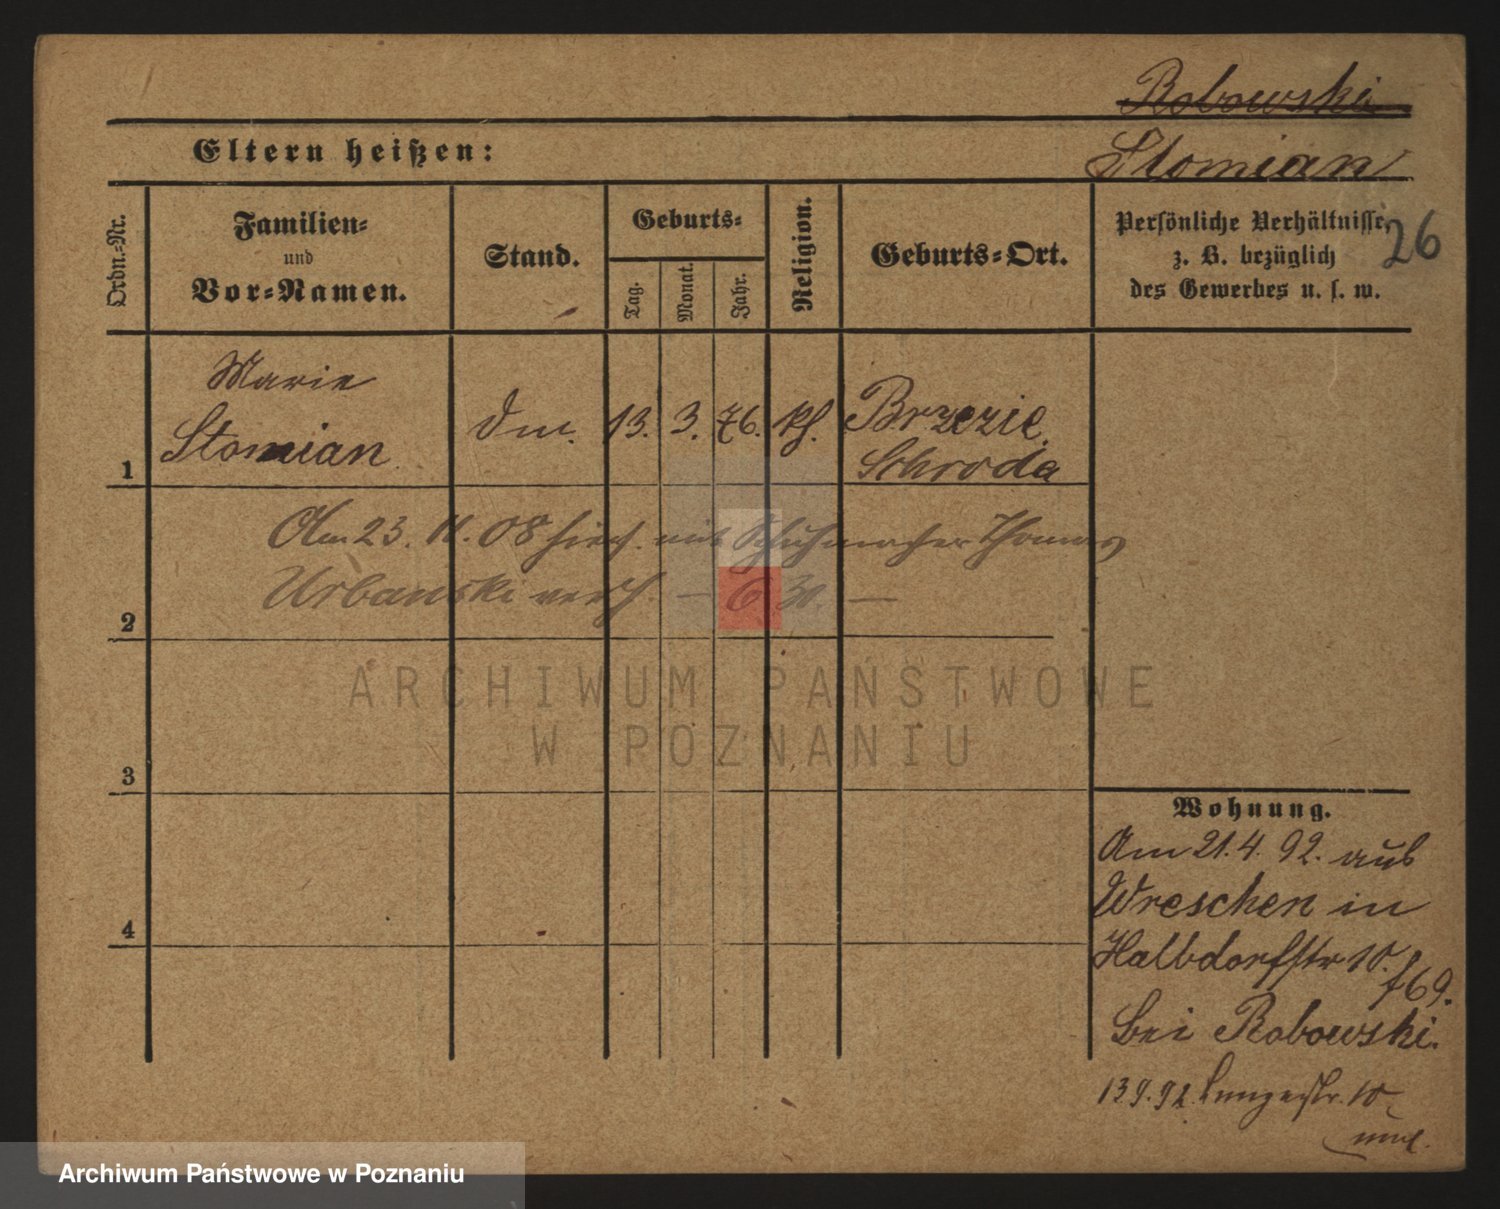 Robowski
Eltern heißen:
Stomian
Ordn.-Nr.
Familien-
und
Vor-Namen.
Stand.
Geburts-
Tag.
Monat.
Jahr.
Religion.
Geburts-Ort.
Persönliche Verhältnisse,
z. B. bezüglich
des Gewerbes u. s. w.
26
Marie
Stomian
1
13. 3. 76. kf.
Brzezie.
Schroda
Am 23. 11. 08 hier mit Schuhmacher Thomas
Urbanski verh. — 6 30. —
2
ARCHIWUM PAŃSTWOWE
W POZNANIU
3
4
Wohnung.
Am 21. 4. 92. aus
Wreschen in
Halbdorfstr 10.
f69.
bei Robowski.
13.9.92. 10
Archiwum Państwowe w Poznaniu